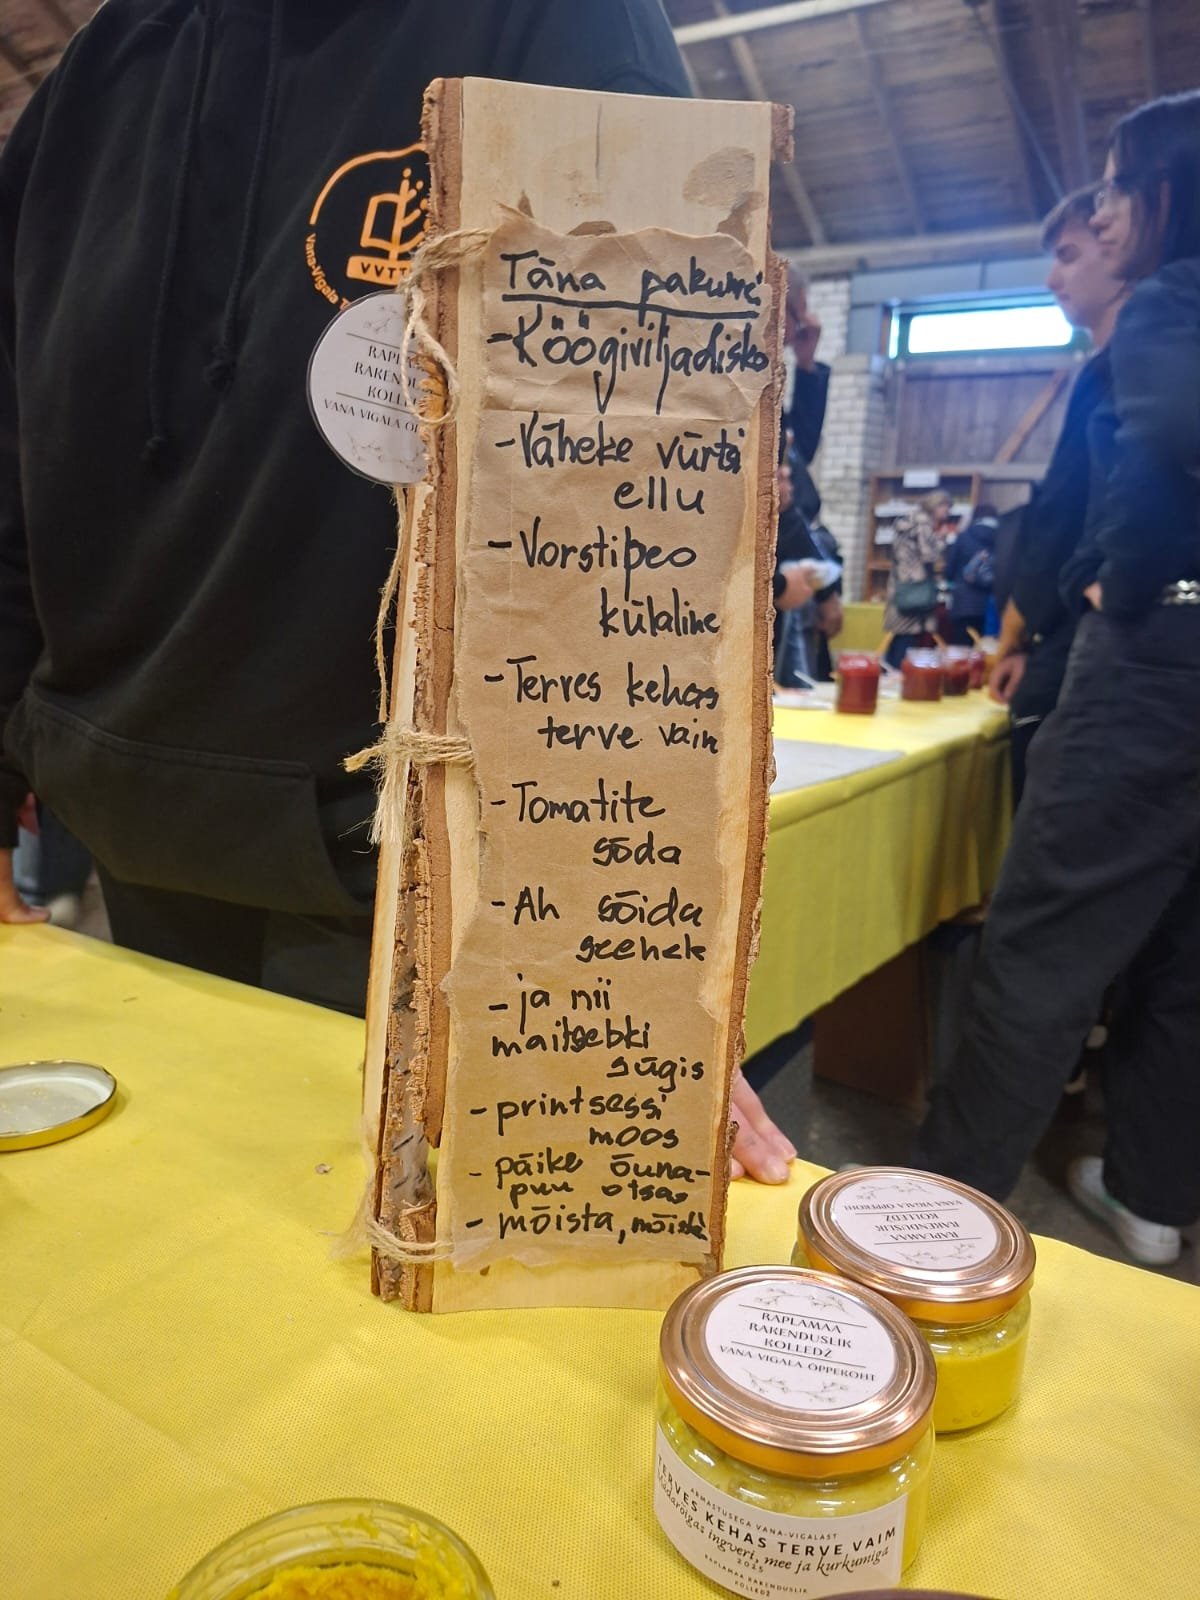 Täna pakume
- Köögiviljadisko
- Väheke vürtsi
ellu
- Vorstipeo
külaline
- Terves kehas
terve vaim
- Tomatite
sõda
- Ah sõida
seenele
- ja nii
maitsebki
sügis
- printsessi
moos
- päike õuna-
puu otsas
- mõista, mõista
VVTT
Vana-Vigala
RAKENDU
VANA-VIGALA
RAPLAMAA
RAKENDUSLIK
KOLLEDŽ
VANA-VIGALA ÕPPEKOHT
RAPLAMAA
RAKENDUSLIK
KOLLEDŽ
VANA-VIGALA ÕPPEKOHT
ARMASTUSEGA VANA-VIGALAST
TERVES KEHAS TERVE VAIM
Mädarõigas ingveri, mee ja kurkumiga
2025
RAPLAMAA RAKENDUSLIK
KOLLEDŽ